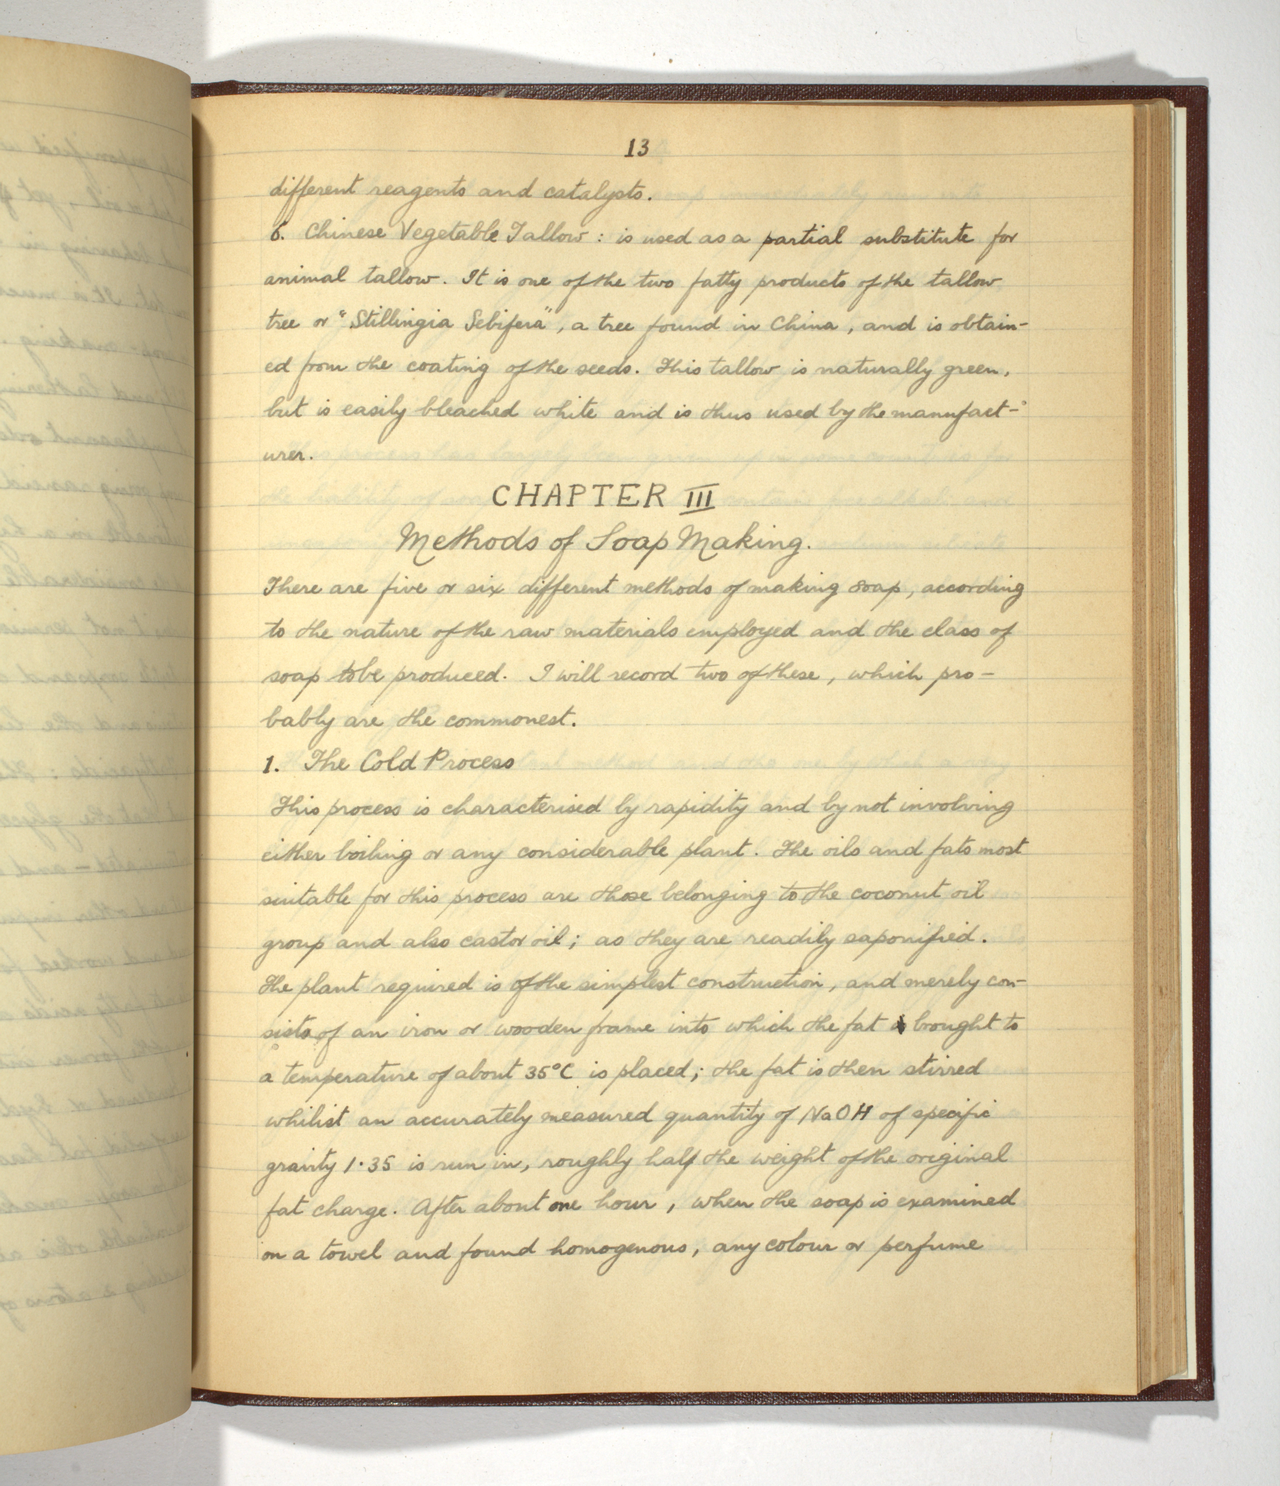 13
different reagents and catalysts.
6. Chinese Vegetable Tallow : is used as a partial substitute for
animal tallow. It is one of the two fatty products of the tallow
tree or "Stillingia Sebifera", a tree found in China, and is obtain-
ed from the coating of the seeds. This tallow is naturally green,
but is easily bleached white and is thus used by the manufact-
urer.
CHAPTER III
Methods of Soap Making.
There are five or six different methods of making soap, according
to the nature of the raw materials employed and the class of
soap to be produced. I will record two of these, which pro-
bably are the commonest.
1. The Cold Process
This process is characterised by rapidity and by not involving
either boiling or any considerable plant. The oils and fats most
suitable for this process are those belonging to the coconut oil
group and also castor oil; as they are readily saponified.
The plant required is of the simplest construction, and merely con-
sists of an iron or wooden frame into which the fat brought to
a temperature of about 35°C is placed; the fat is then stirred
whilist an accurately measured quantity of NaOH of specific
gravity 1·35 is run in, roughly half the weight of the original
fat charge. After about one hour, when the soap is examined
on a towel and found homogenous, any colour or perfume